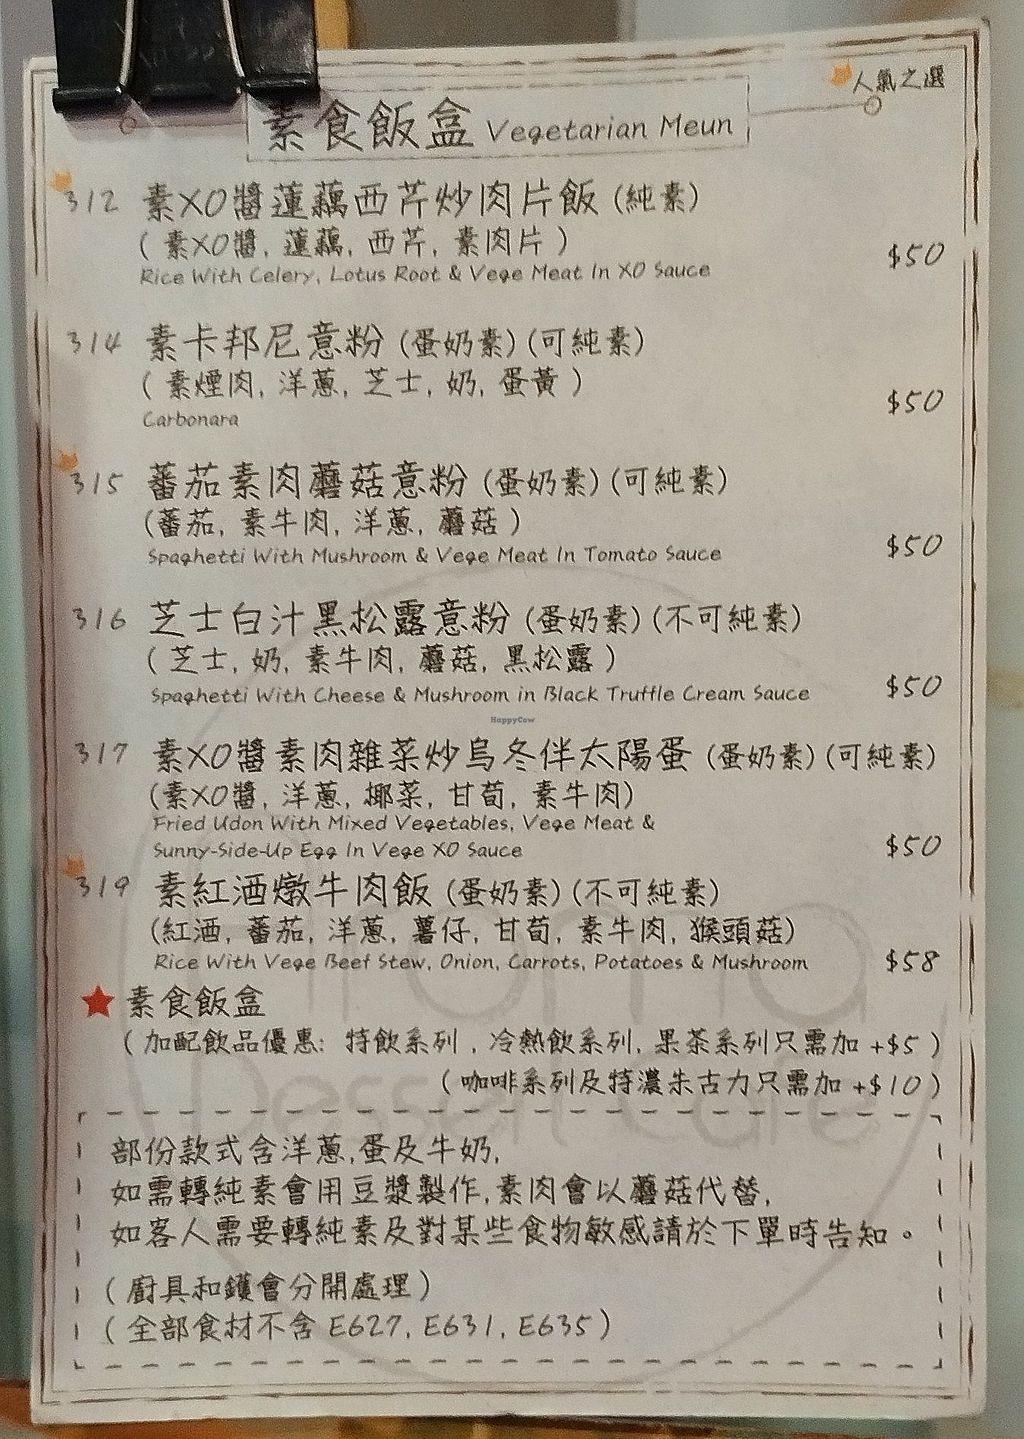 人氣之選
素食飯盒 Vegetarian Meun
312 素XO醬蓮藕西芹炒肉片飯 (純素)
( 素XO醬, 蓮藕, 西芹, 素肉片 )
Rice With Celery, Lotus Root & Vege Meat In XO Sauce
$50
314 素卡邦尼意粉 (蛋奶素) (可純素)
( 素煙肉, 洋蔥, 芝士, 奶, 蛋黃 )
Carbonara
$50
315 蕃茄素肉蘑菇意粉 (蛋奶素) (可純素)
(蕃茄, 素牛肉, 洋蔥, 蘑菇 )
Spaghetti With Mushroom & Vege Meat In Tomato Sauce
$50
316 芝士白汁黑松露意粉 (蛋奶素) (不可純素)
( 芝士, 奶, 素牛肉, 蘑菇, 黑松露 )
Spaghetti With Cheese & Mushroom in Black Truffle Cream Sauce
$50
HappyCow
317 素XO醬素肉雜菜炒烏冬伴太陽蛋 (蛋奶素) (可純素)
(素XO醬, 洋蔥, 椰菜, 甘荀, 素牛肉)
Fried Udon With Mixed Vegetables, Vege Meat &
Sunny-Side-Up Egg In Vege XO Sauce
$50
319 素紅酒燉牛肉飯 (蛋奶素) (不可純素)
(紅酒, 蕃茄, 洋蔥, 薯仔, 甘荀, 素牛肉, 猴頭菇)
Rice With Vege Beef Stew, Onion, Carrots, Potatoes & Mushroom
$58
素食飯盒
( 加配飲品優惠: 特飲系列 , 冷熱飲系列, 果茶系列只需加 +$5 )
( 咖啡系列及特濃朱古力只需加 +$10 )
Dessert Cafe
部份款式含洋蔥,蛋及牛奶,
如需轉純素會用豆漿製作,素肉會以蘑菇代替,
如客人需要轉純素及對某些食物敏感請於下單時告知。
( 廚具和鑊會分開處理 )
( 全部食材不含 E627, E631, E635 )